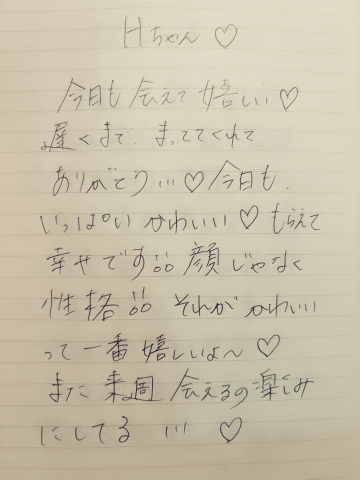 Hちゃん♡
今日も会えて嬉しい♡
遅くまで、まっててくれて
ありがとう…♡今日も、
いっぱいかわいい♡もらえて
幸せです!! 顔じゃなく
性格!! それがかわいい
って一番嬉しいよ〜♡
また来週会えるの楽しみ
にしてる…♡